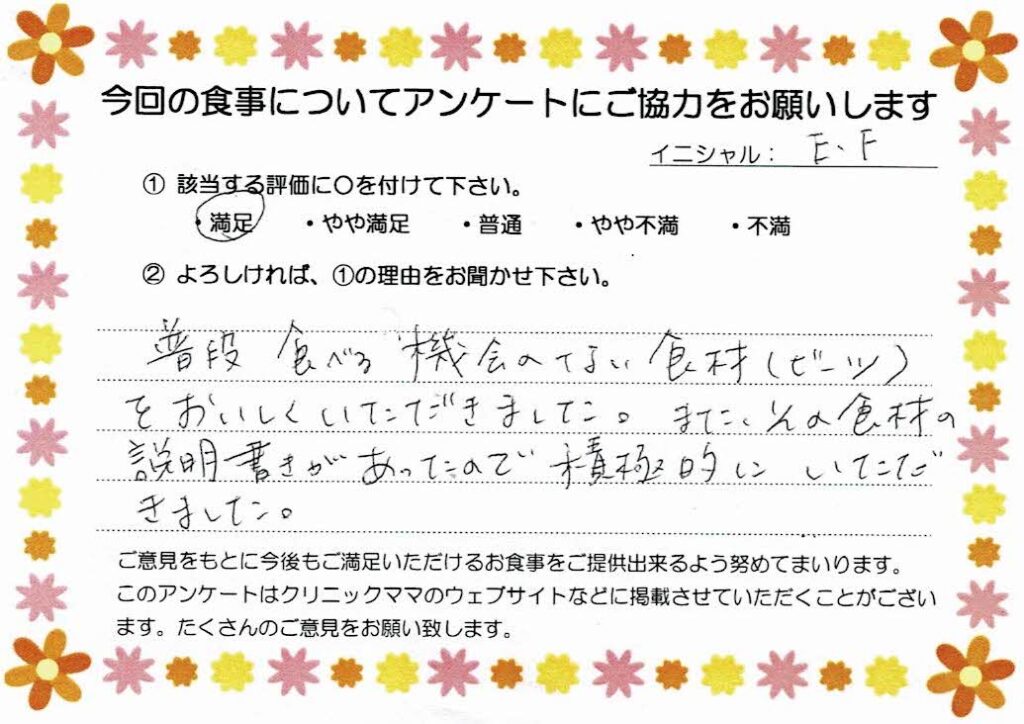 今回の食事についてアンケートにご協力をお願いします
イニシャル： E.F
① 該当する評価に〇を付けて下さい。
・満足 ・やや満足 ・普通 ・やや不満 ・不満
② よろしければ、①の理由をお聞かせ下さい。
普段 食べる機会のない食材(ビーツ)
をおいしくいただきました。また、その食材の
説明書きがあったので積極的に いただ
きました。
ご意見をもとに今後もご満足いただけるお食事をご提供出来るよう努めてまいります。
このアンケートはクリニックママのウェブサイトなどに掲載させていただくことがござい
ます。たくさんのご意見をお願い致します。